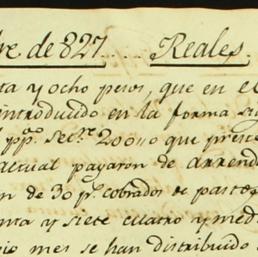 re de 827 Reales
ta y ocho pesos, que en el
introducido en la forma sig
pp.ᵒ Sec.ᵗᵉ 200110 que
actual pagaron de arrend
n de 30 p.ˢ cobrados de
nta y siete cuatro y med
io mes se han distribuido